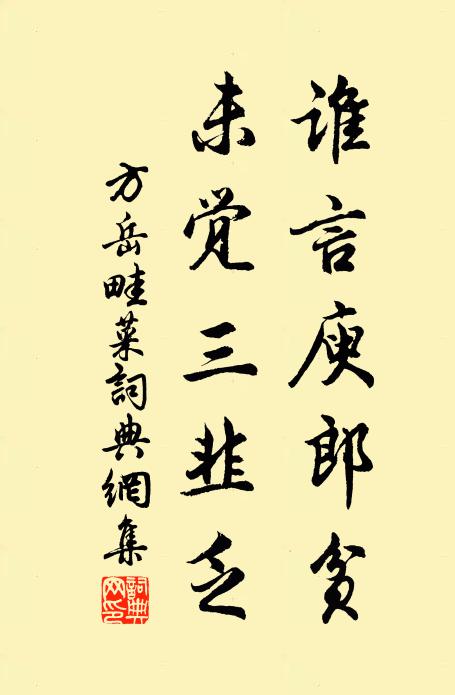 谁言庾郎贫
未觉三韭乏
方岳畦菜詞典網集
詞典网印